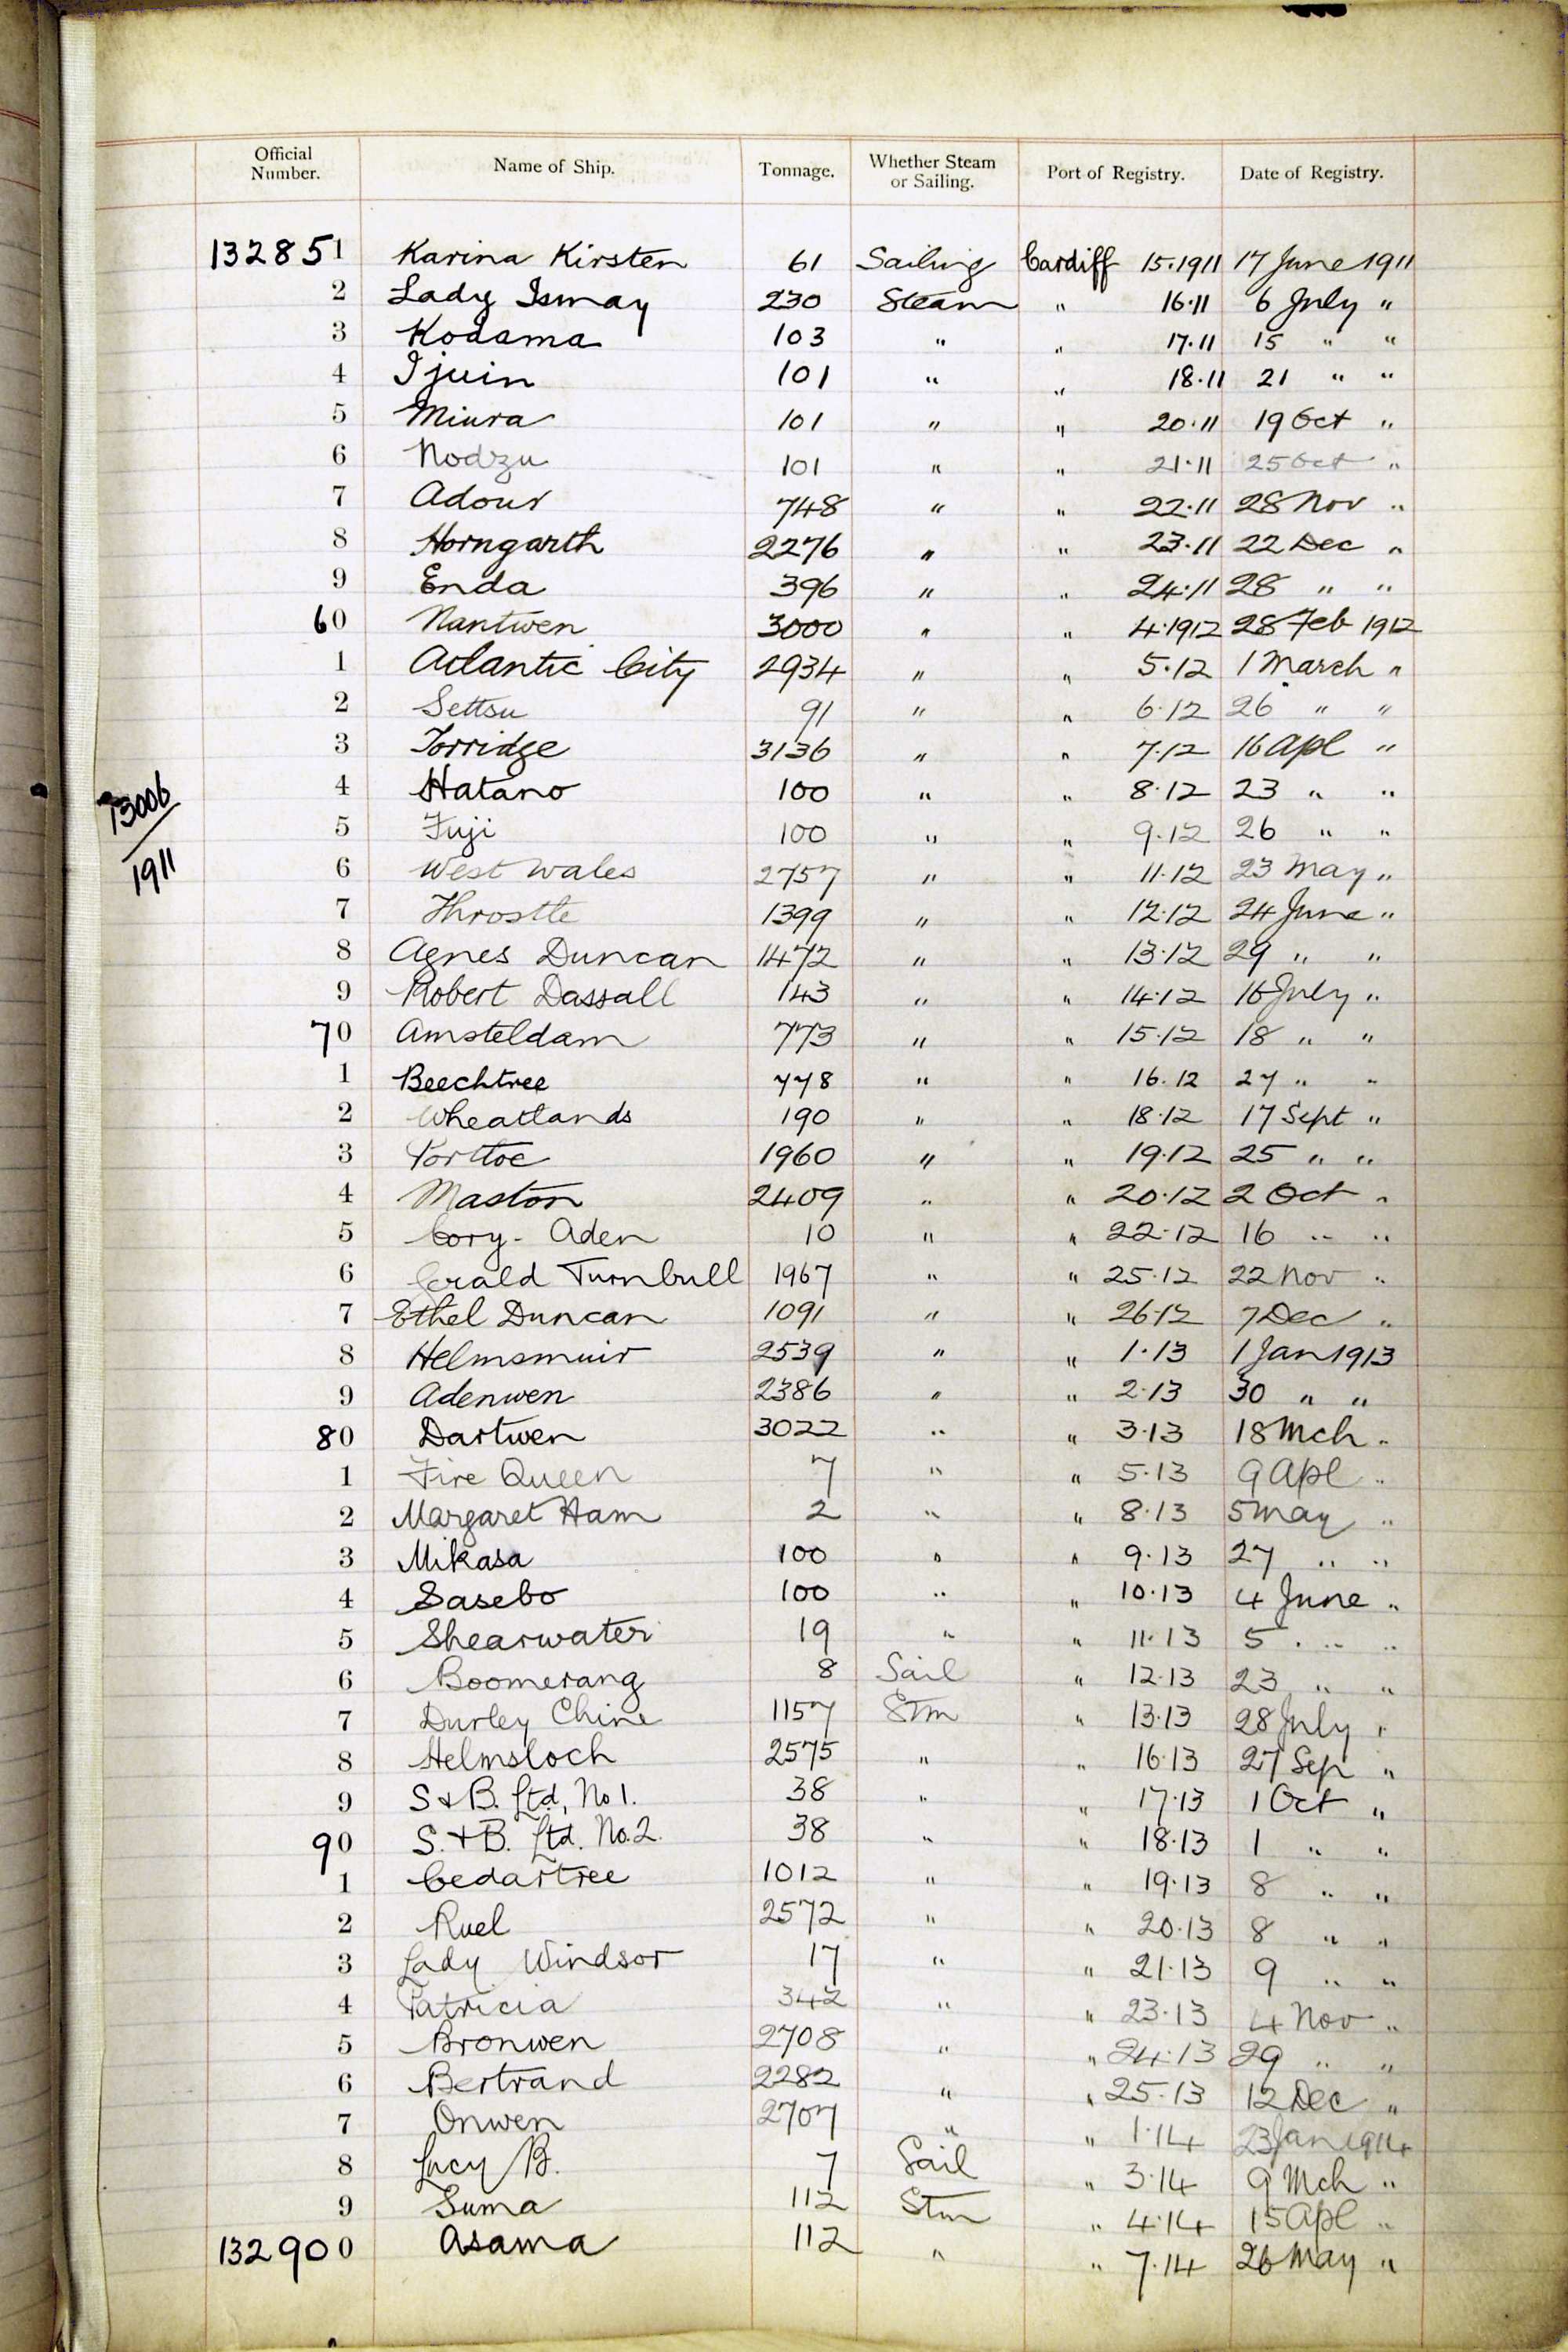 Official Number. Name of Ship. Tonnage. Whether Steam or Sailing. Port of Registry. Date of Registry.
132851 Karina Kirsten 61 Sailing Cardiff 15.1911 17 June 1911
2 Lady Ismay 230 Steam " 16.11 6 July "
3 Kodama 103 " " 17.11 15 " "
4 Ijuin 101 " " 18.11 21 " "
5 Miura 101 " " 20.11 19 Oct "
6 Nodzu 101 " " 21.11 25 Oct "
7 Adour 748 " " 22.11 28 Nov "
8 Horngarth 2276 " " 23.11 22 Dec "
9 Enda 396 " " 24.11 28 " "
60 Nantwen 3000 " " 4.1912 28 Feb 1912
1 Atlantic City 2934 " " 5.12 1 March "
2 Settsu 91 " " 6.12 26 " "
3 Torridge 3136 " " 7.12 16 Apl "
4 Hatano 100 " " 8.12 23 " "
73006
1911
5 Fuji 100 " " 9.12 26 " "
6 West Wales 2757 " " 11.12 23 May "
7 Throstle 1399 " " 12.12 24 June "
8 Agnes Duncan 1472 " " 13.12 29 " "
9 Robert Dassall 143 " " 14.12 16 July "
70 Amsteldam 773 " " 15.12 18 " "
1 Beechtree 778 " " 16.12 27 " "
2 Wheatlands 190 " " 18.12 17 Sept "
3 Porttoe 1960 " " 19.12 25 " "
4 Maston 2409 " " 20.12 2 Oct "
5 Cory - Aden 10 " " 22.12 16 " "
6 Gerald Turnbull 1967 " " 25.12 22 Nov "
7 Ethel Duncan 1091 " " 26.12 7 Dec "
8 Helmsmuir 2539 " " 1.13 1 Jan 1913
9 Adenwen 2386 " " 2.13 30 " "
80 Dartwen 3022 " " 3.13 18 Mch "
1 Fire Queen 7 " " 5.13 9 Apl "
2 Margaret Ham 2 " " 8.13 5 May "
3 Mikasa 100 " " 9.13 27 " "
4 Sasebo 100 " " 10.13 4 June "
5 Shearwater 19 " " 11.13 5 " "
6 Boomerang 8 Sail " 12.13 23 " "
7 Durley Chine 1157 Stm " 13.13 28 July "
8 Helmsloch 2575 " " 16.13 27 Sep "
9 S & B. Ltd, No 1. 38 " " 17.13 1 Oct "
90 S. + B. Ltd. No. 2. 38 " " 18.13 1 " "
1 Cedartree 1012 " " 19.13 8 " "
2 Ruel 2572 " " 20.13 8 " "
3 Lady Windsor 17 " " 21.13 9 " "
4 Patricia 342 " " 23.13 4 Nov "
5 Bronwen 2708 " " 24.13 29 " "
6 Bertrand 2282 " " 25.13 12 Dec "
7 Onwen 2707 " " 1.14 23 Jan 1914
8 Lucy B. 7 Sail " 3.14 9 Mch "
9 Suma 112 Stm " 4.14 15 Apl "
132900 Asama 112 " " 7.14 26 May "